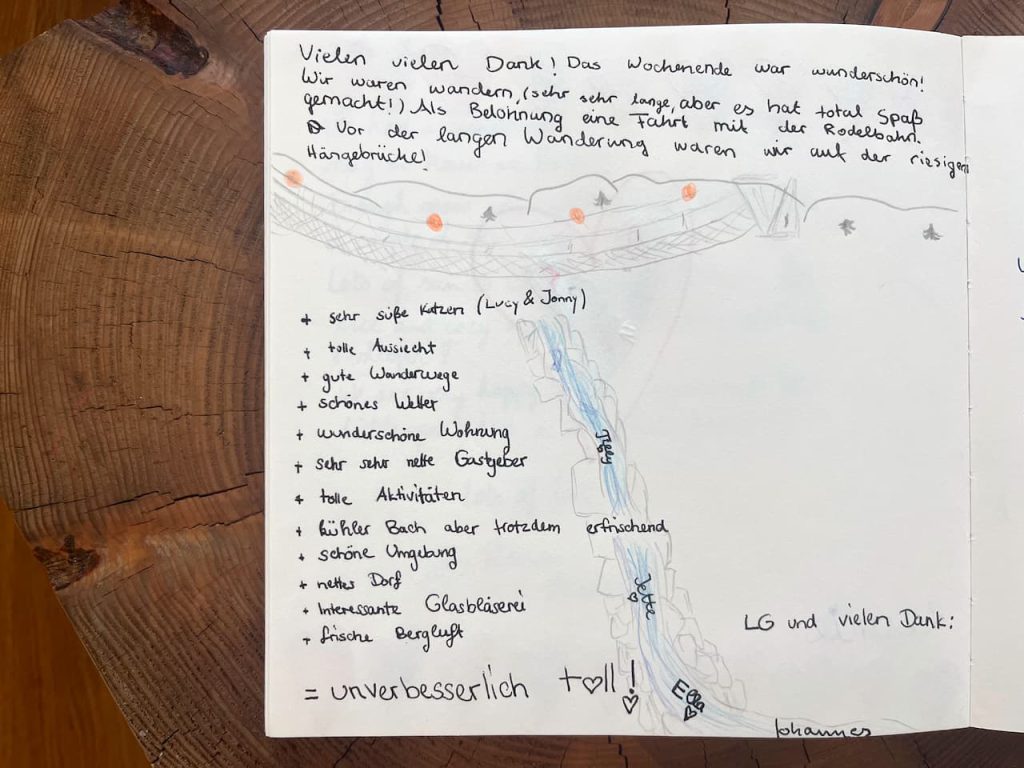 Vielen vielen Dank! Das Wochenende war wunderschön!
Wir waren wandern, (sehr sehr lange, aber es hat total Spaß
gemacht!) Als Belohnung eine Fahrt mit der Rodelbahn.
Vor der langen Wanderung waren wir auf der riesigen
Hängebrücke!
+ sehr süße Katzen (Lucy & Jonny)
+ tolle Aussiecht
+ gute Wanderwege
+ schönes Wetter
+ wunderschöne Wohnung
+ sehr sehr nette Gastgeber
+ tolle Aktivitäten
+ kühler Bach aber trotzdem erfrischend
+ schöne Umgebung
+ nettes Dorf
+ Interessante Glasbläserei
+ frische Bergluft
= unverbesserlich t♡ll!
Jette
Ella
LG und vielen Dank:
Johannes